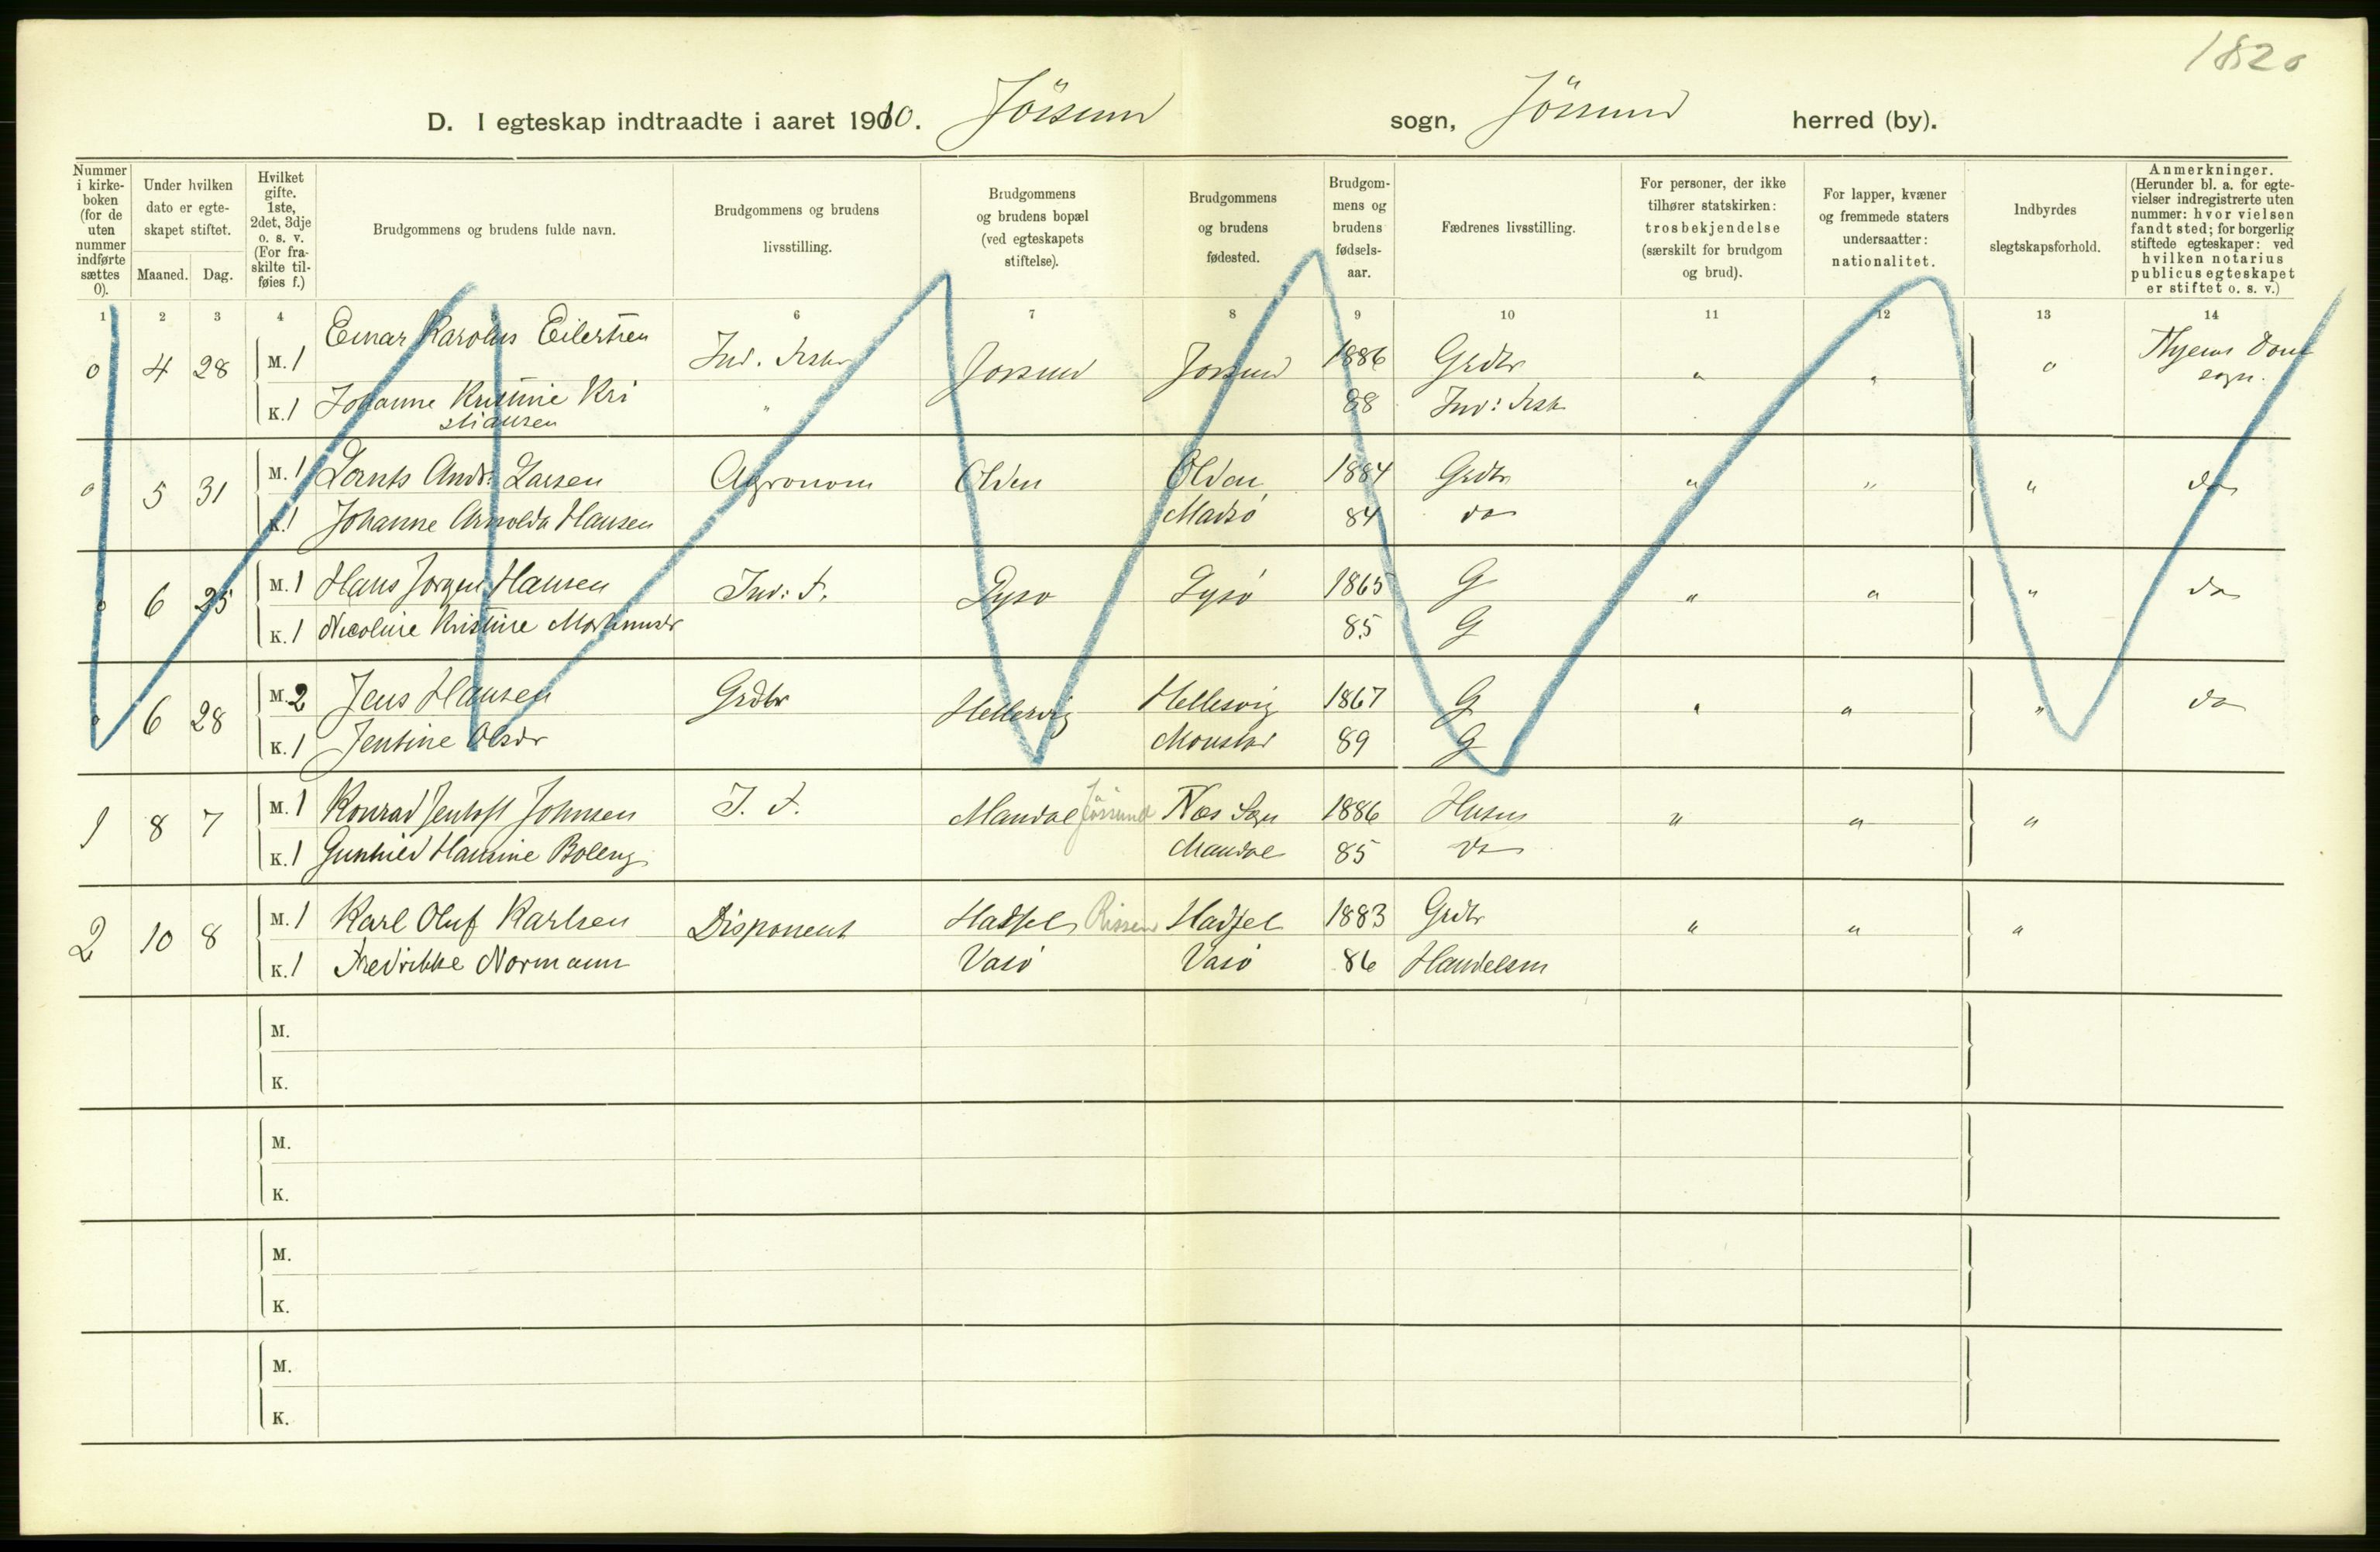 1820
D. I egteskap indtraadte i aaret 1910. Jössund sogn, Jössund herred (by).
Nummer i kirke-boken (for de uten nummer indførte sættes 0).
Under hvilken dato er egte-skapet stiftet.
Maaned. Dag.
Hvilket gifte. 1ste, 2det, 3dje o. s. v. (For fra-skilte til-føies f.)
Brudgommens og brudens fulde navn.
Brudgommens og brudens livsstilling.
Brudgommens og brudens bopæl (ved egteskapets stiftelse).
Brudgommens og brudens fødested.
Brudgom-mens og brudens fødsels-aar.
Fædrenes livsstilling.
For personer, der ikke tilhører statskirken: trosbekjendelse (særskilt for brudgom og brud).
For lapper, kvæner og fremmede staters undersaatter: nationalitet.
Indbyrdes slegtskapsforhold.
Anmerkninger. (Herunder bl. a. for egte-vielser indregistrerte uten nummer: hvor vielsen fandt sted; for borgerlig stiftede egteskaper: ved hvilken notarius publicus egteskapet er stiftet o. s. v.)
1 2 3 4 5 6 7 8 9 10 11 12 13 14
0 4 28 M. 1 Einar Karolus Eilertsen Ind. Fisker Jossund Jossund 1886 Grdbr " " " sogn.
K. 1 Johanne Kristine Kri " 88 Ind: Fisk
stiansen
0 5 31 M. 1 Andr: Larsen Agronom Olden Olden 1884 Grdbr " " " do
K. 1 Johanne Arnolda Hansen Madsö 84 do
0 6 25 M. 1 Hans Jorgen Hansen Ind: F. Lyso Lysö 1865 G " " " do
K. 1 Nicoline Kristine 85 G
0 6 28 M. 2 Jens Hansen Grdbr Hellesvig Hellesvig 1867 G " " " do
K. 1 Jentine Olsdr 89 G
1 8 7 M. 1 Konrad Jentoft Johnsen I. F. Mandal Jössund Næs Sogn 1886 Husm " " "
K. 1 Gunhild Hansine Boleng Mandal 85 do
2 10 8 M. 1 Karl Oluf Karlsen Disponent Hadsel Rissen Hadsel 1883 Grdbr " " "
K. 1 Fredrikke Normann Vasö Vasö 86 Handelsm
M.
K.
M.
K.
M.
K.
M.
K.